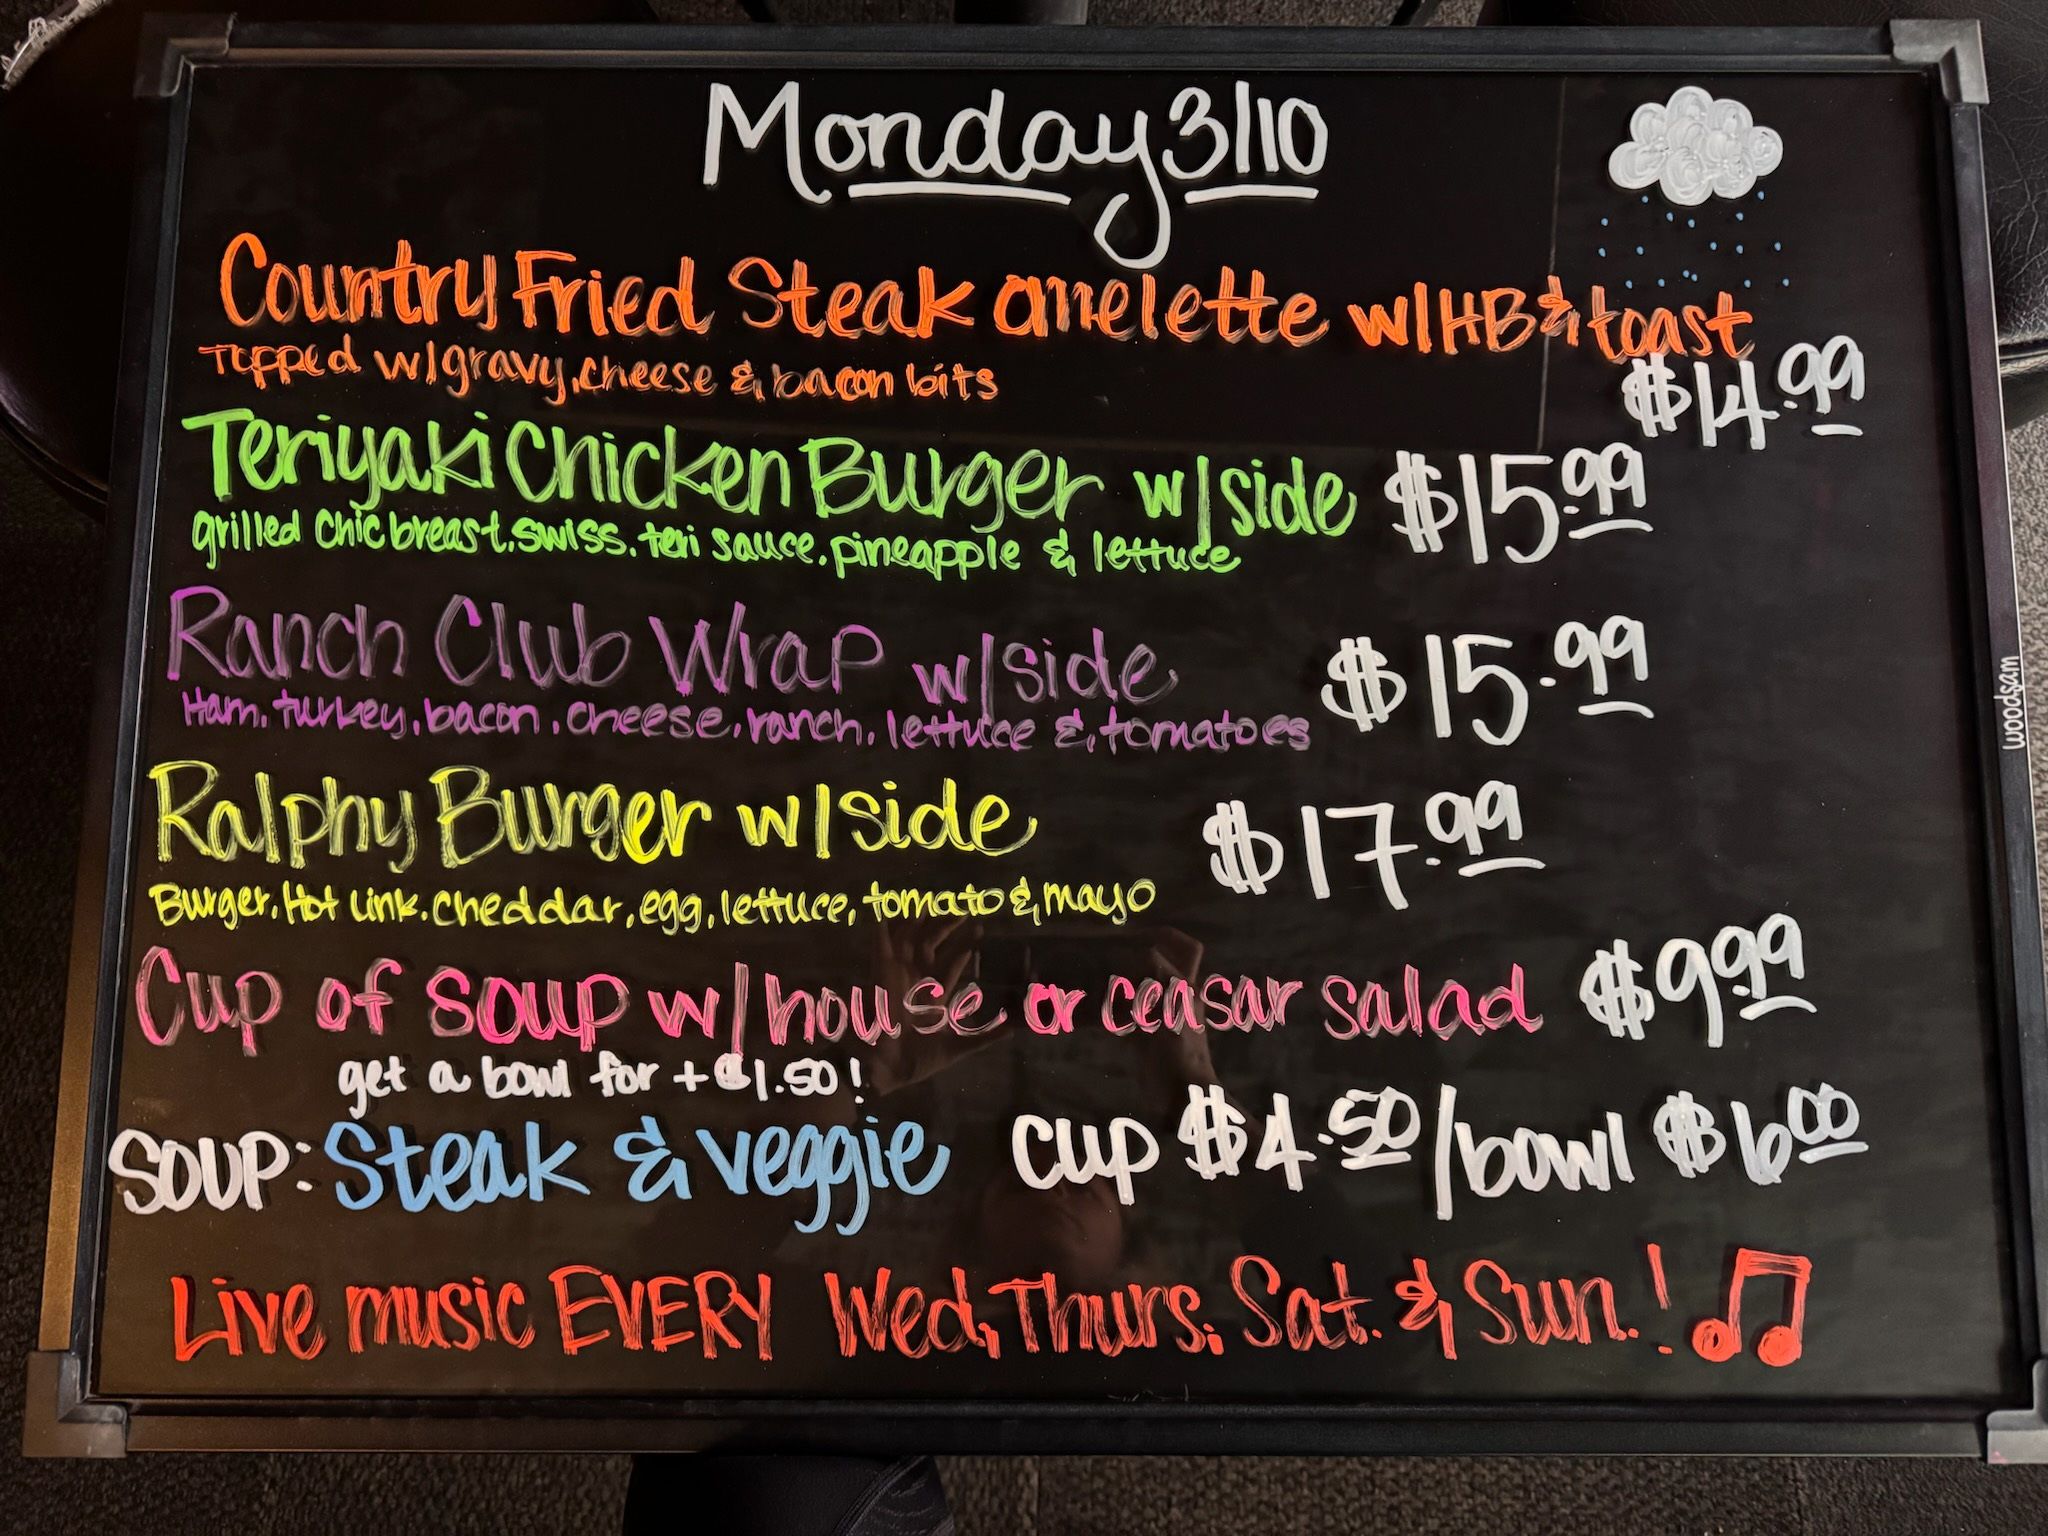 Monday 3/10
Country Fried Steak omelette w/ HB & toast
Topped w/ gravy, cheese & bacon bits
$14.99
Teriyaki Chicken Burger w/ side $15.99
grilled chic breast, swiss, teri sauce, pineapple & lettuce
Ranch Club Wrap w/ side $15.99
Ham, turkey, bacon, cheese, ranch, lettuce & tomatoes
Ralphy Burger w/ side $17.99
Burger, Hot Link, cheddar, egg, lettuce, tomato & mayo
Cup of soup w/ house or ceasar salad $9.99
get a bowl for + $1.50!
SOUP: Steak & veggie cup $4.50/bowl $6.00
Live music EVERY Wed, Thurs, Sat. & Sun.!
woodsam